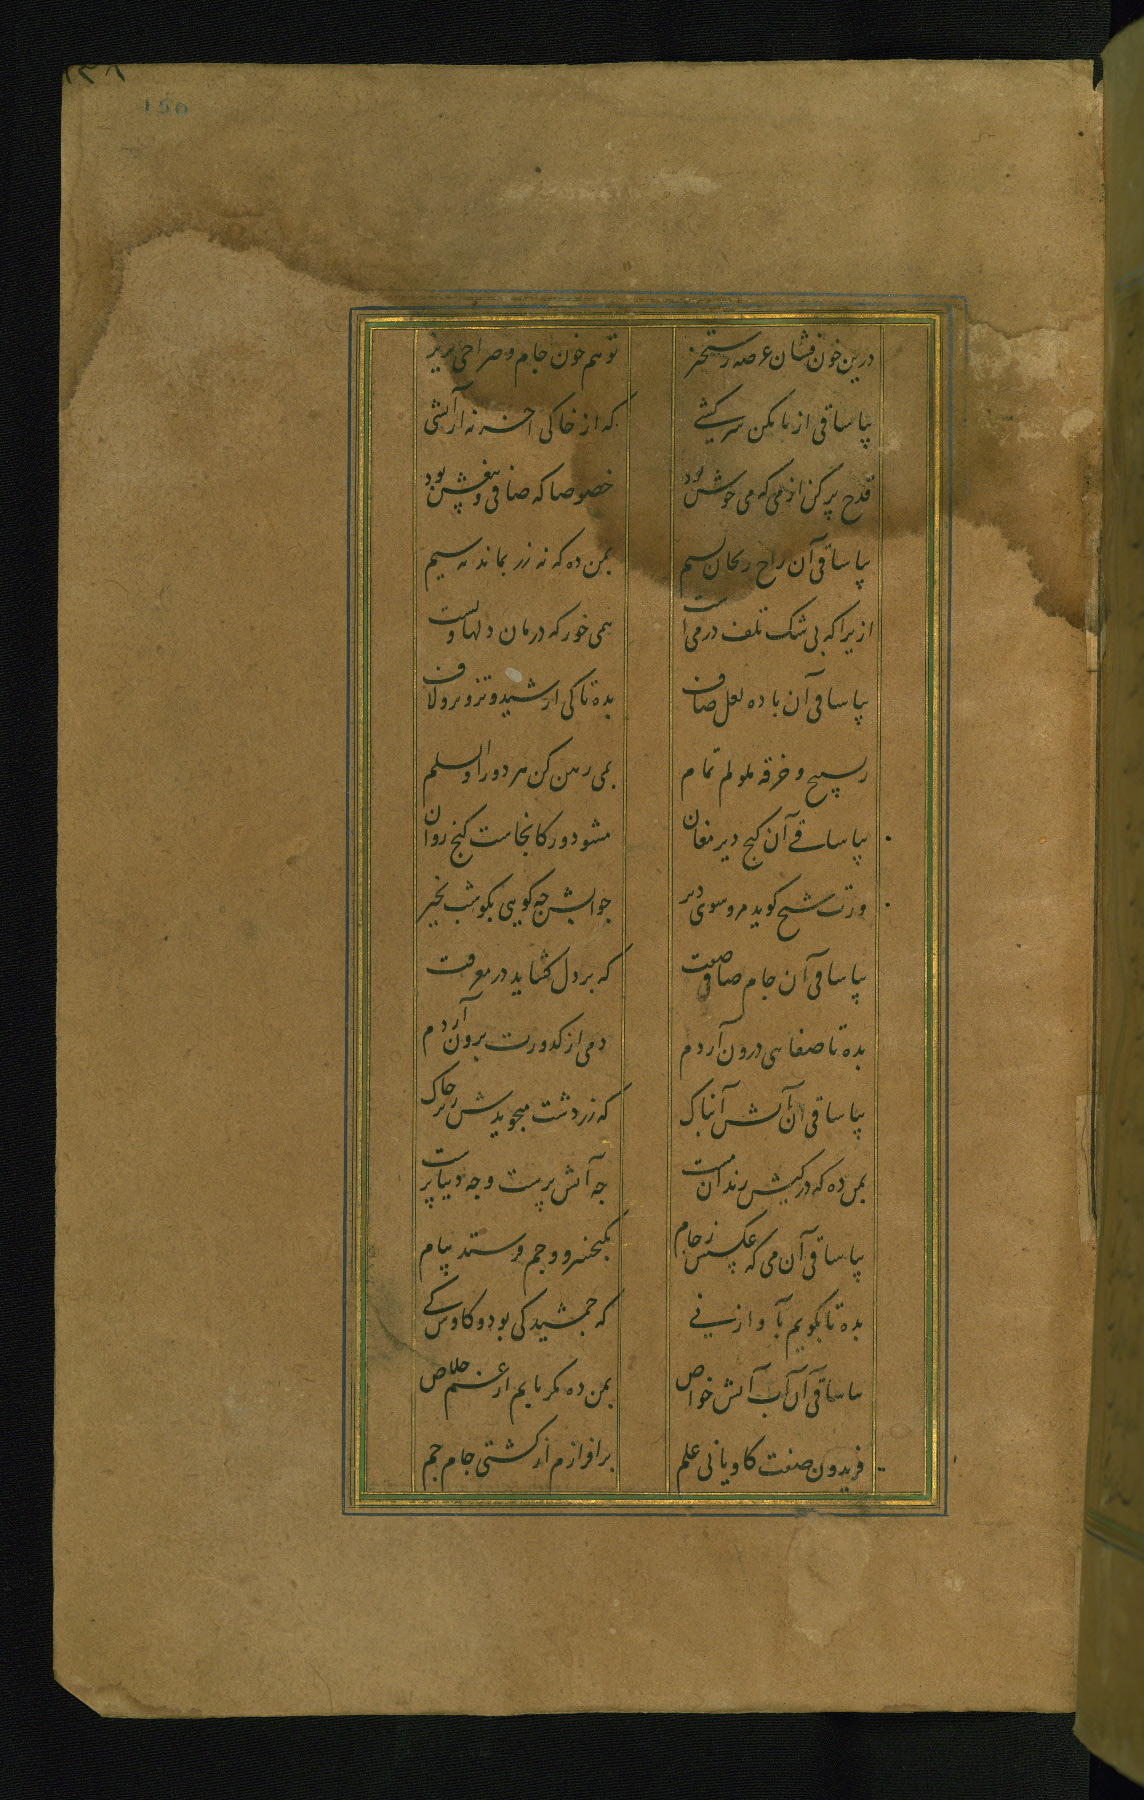 ۱۳۸
150
درین خون فشان عرصه رستخیز توهم خون جام و صراحی بریز
بیا ساقی از ما مکن سرکشی که از خاکی آخر نه از آتشی
قدح پر کن از می که می خوش بود خصوصا که صافی و بیغش بود
بیا ساقی آن راح ریحان نسیم بمن ده که نه زر بماند نه سیم
ازیرا که بی شک تلف در می است همی خور که درمان دلها ویست
بیا ساقی آن باده لعل صاف بده تا کی از شید و تزویر و لاف
ز تسبیح و خرقه ملولم تمام بمی رهن کن هر دو را والسلم
بیا ساقی آن کنج دیر مغان مشو دور کانجاست کنج روان
ورت شیخ کوید مرو سوی دیر جوابش چه کویی بکو شب بخیر
بیا ساقی آن جام صافی صفت که بر دل کشاید در معرفت
بده تا صفایی درون آردم دمی از کدورت برون آردم
بیا ساقی آن آتش تابناک که زردشت میجویدش زیر خاک
بمن ده که در کیش رندان مست چه آتش پرست و چه دنیا پرست
بیا ساقی آن می که عکسش ز جام بکیخسرو و جم فرستد پیام
بده تا بکویم بآواز نی که جمشید کی بود و کاوس کی
بیا ساقی آن آب آتش خواص بمن ده مکر یابم از غم خلاص
فریدون صفت کاویانی علم برافرازم از کشتی جام جم